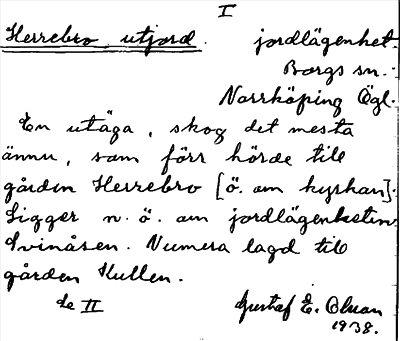 I
Herrebro utjord. jordlägenhet.
Borgs sn.
Norrköping Ögl.
En utäga, skog det mesta
ännu, som förr hörde till
gården Herrebro [ö. om kyrkan].
Ligger n. ö. om jordlägenheten
Svinåsen. Numera lagd till
gården Kullen.
Se II Gustaf E. Olson
1938.